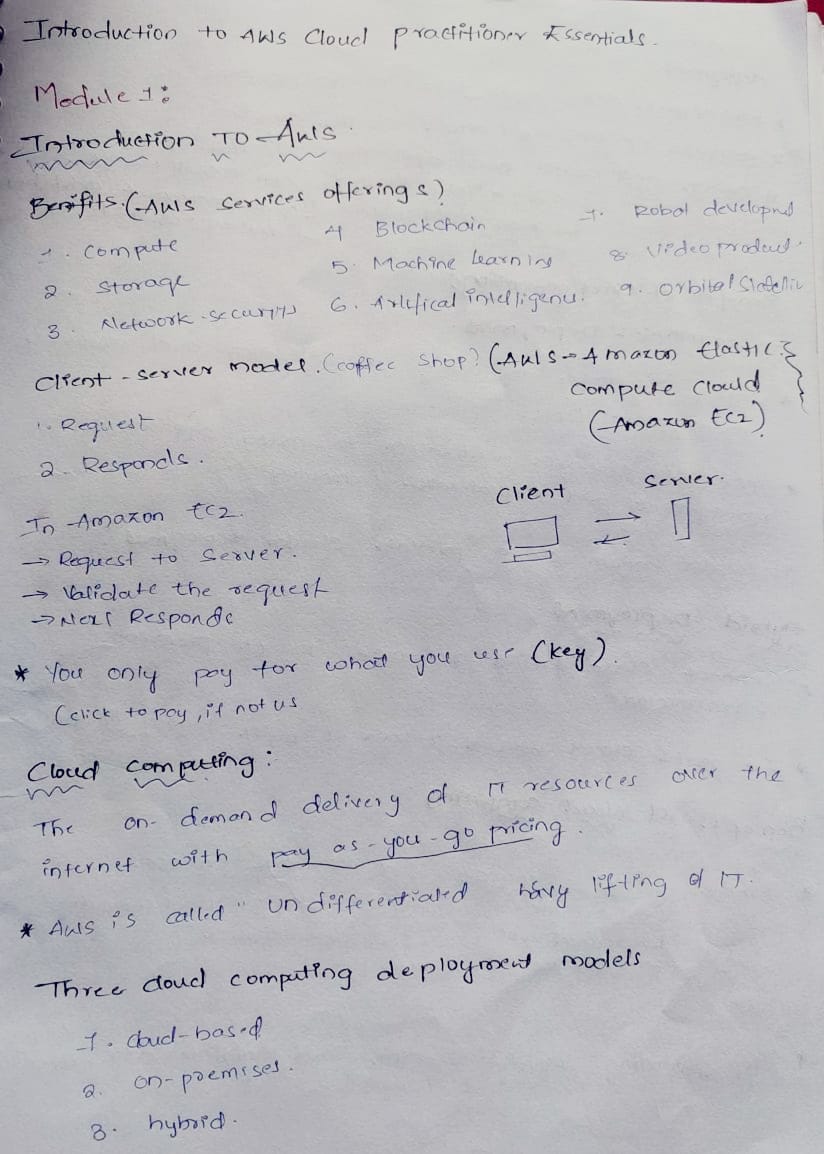 Introduction to AWS Cloud Practitioner Essentials.
Module 1:
Introduction TO AWS
Benifits. (AWS Services offerings)
1. Compute
2. Storage
3. Network security
4 Blockchain
5. Machine learning
6. Artifical intelligenu.
7. Robot developmet
8. Video product.
9. Orbital Satellite
Client - server model. (coffee shop) (AWS - Amazon Elastic
compute Clould
(Amazon EC2)
1. Request
2. Responds.
Client Server.
In Amazon EC2.
→ Request to Server.
→ Validate the request
→ Next Responds
* You only pay for what you use (key).
(click to pay, if not us
Cloud computing:
The on-demand delivery of IT resources over the
internet with pay as-you-go pricing.
* AWS is called "undifferentiated havy lifting of IT.
Three cloud computing deployment models
1. cloud-based
2. on-premises.
3. hybrid.